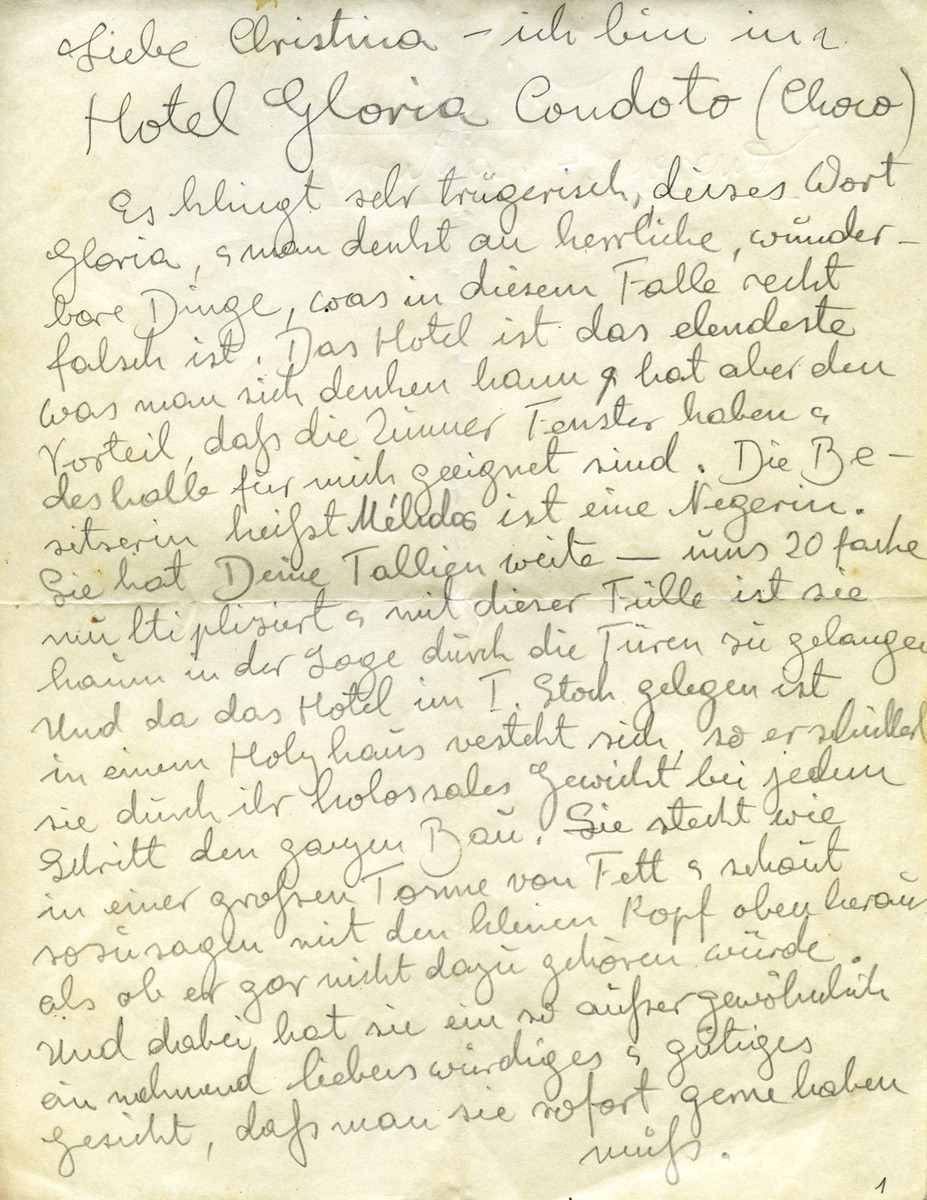 Liebe Christina – ich bin in
Hotel Gloria Condoto (Choco)
Es klingt sehr trügerisch, dieses Wort
Gloria, & man denkt an herrliche, wunder-
bare Dinge, was in diesem Falle recht
falsch ist. Das Hotel ist das elendeste
was man sich denken kann & hat aber den
Vorteil, daß die Zimmer Fenster haben &
deshalb für mich geeignet sind. Die Be-
sitzerin heißt ist eine Negerin.
Sie hat Deine Tallien weite – ums 20 fache
multipliziert & mit dieser Fülle ist sie
kaum in der Lage durch die Türen zu gelangen
Und da das Hotel im I. Stock gelegen ist
in einem Holzhaus vesteht sich, so erschüttert
sie durch ihr kolossales Gewicht bei jedem
Schritt den ganzen Bau. Sie steckt wie
in einer großen Tonne von Fett & schaut
sozusagen mit den kleinen Kopf oben heraus
als ob er gar nicht dazu gehören würde.
Und dabei hat sie ein so außergewöhnlich
ein nehmend liebenswürdiges & gütiges
Gesicht, daß man sie sofort gerne haben
muß.
1